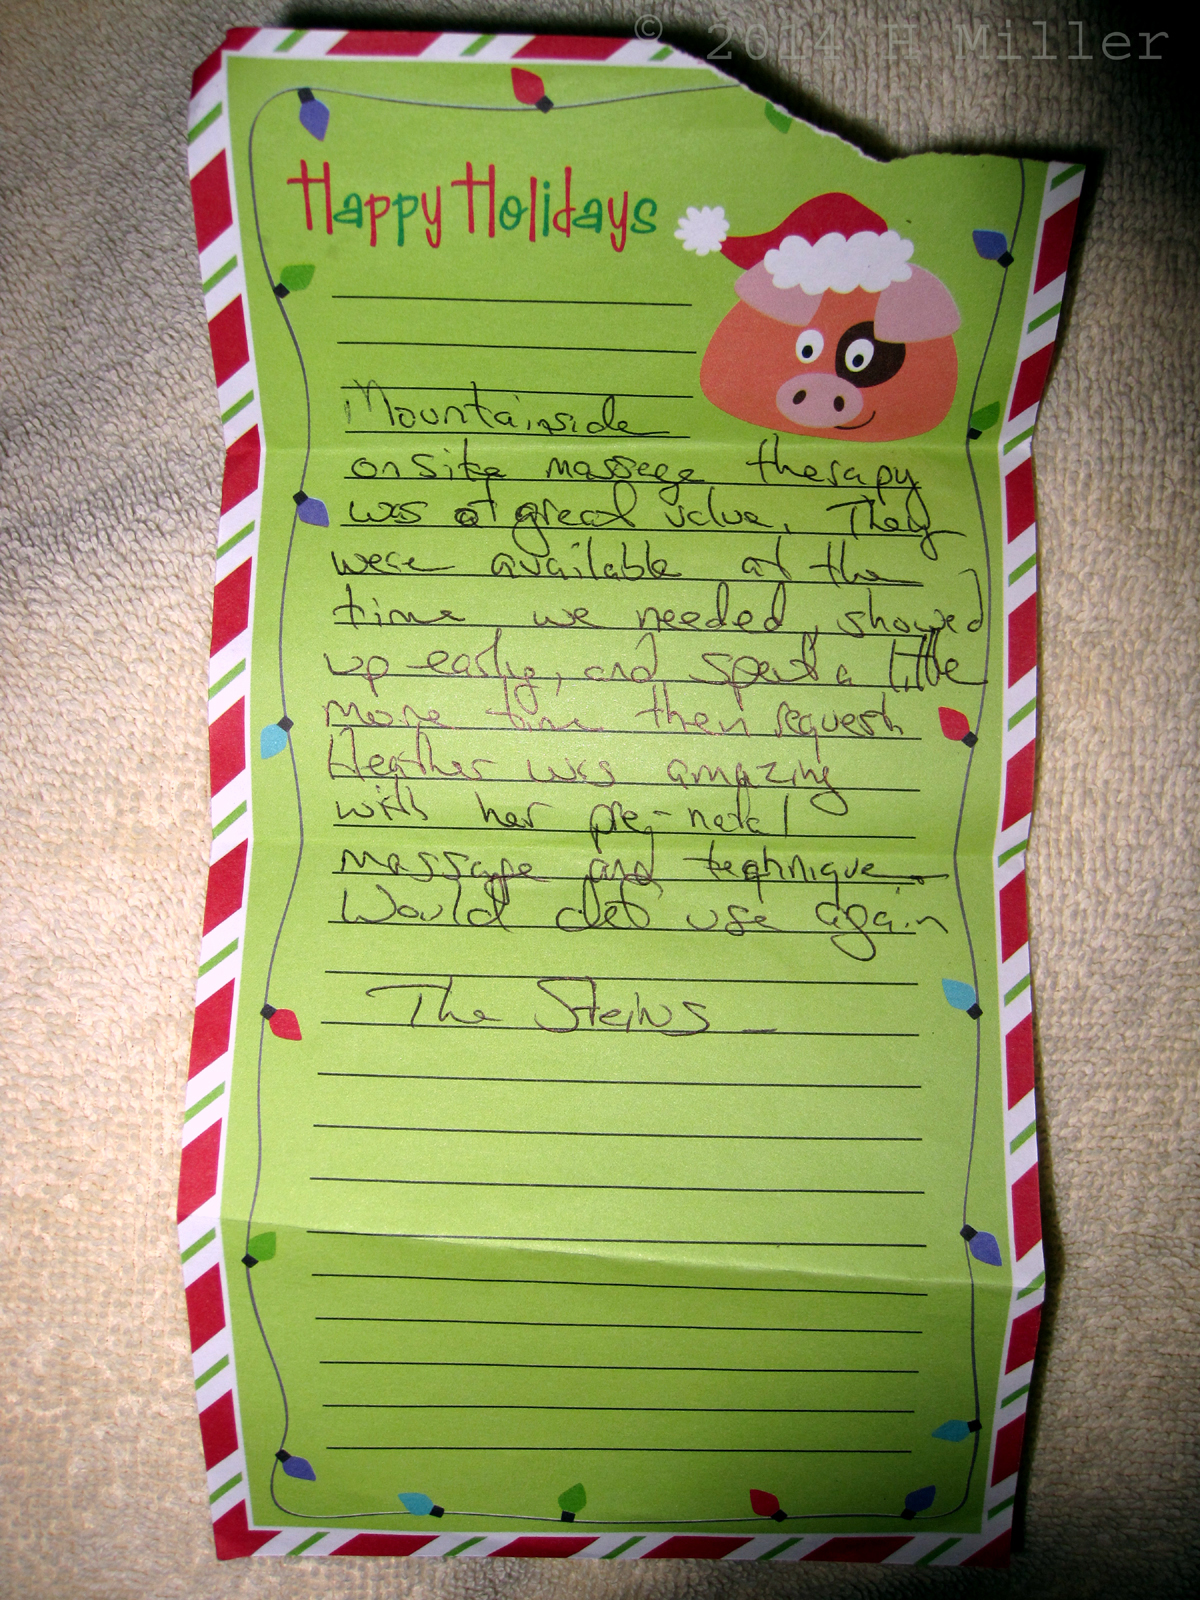 © 2014 H Miller
Happy Holidays
Mountainside
onsite massage therapy
was a great value. They
were available at the
time we needed, showed
up early, and spent a little
more time then request
Heather was amazing
with her pre-natal
massage and technique.
Would def use again
The Steins